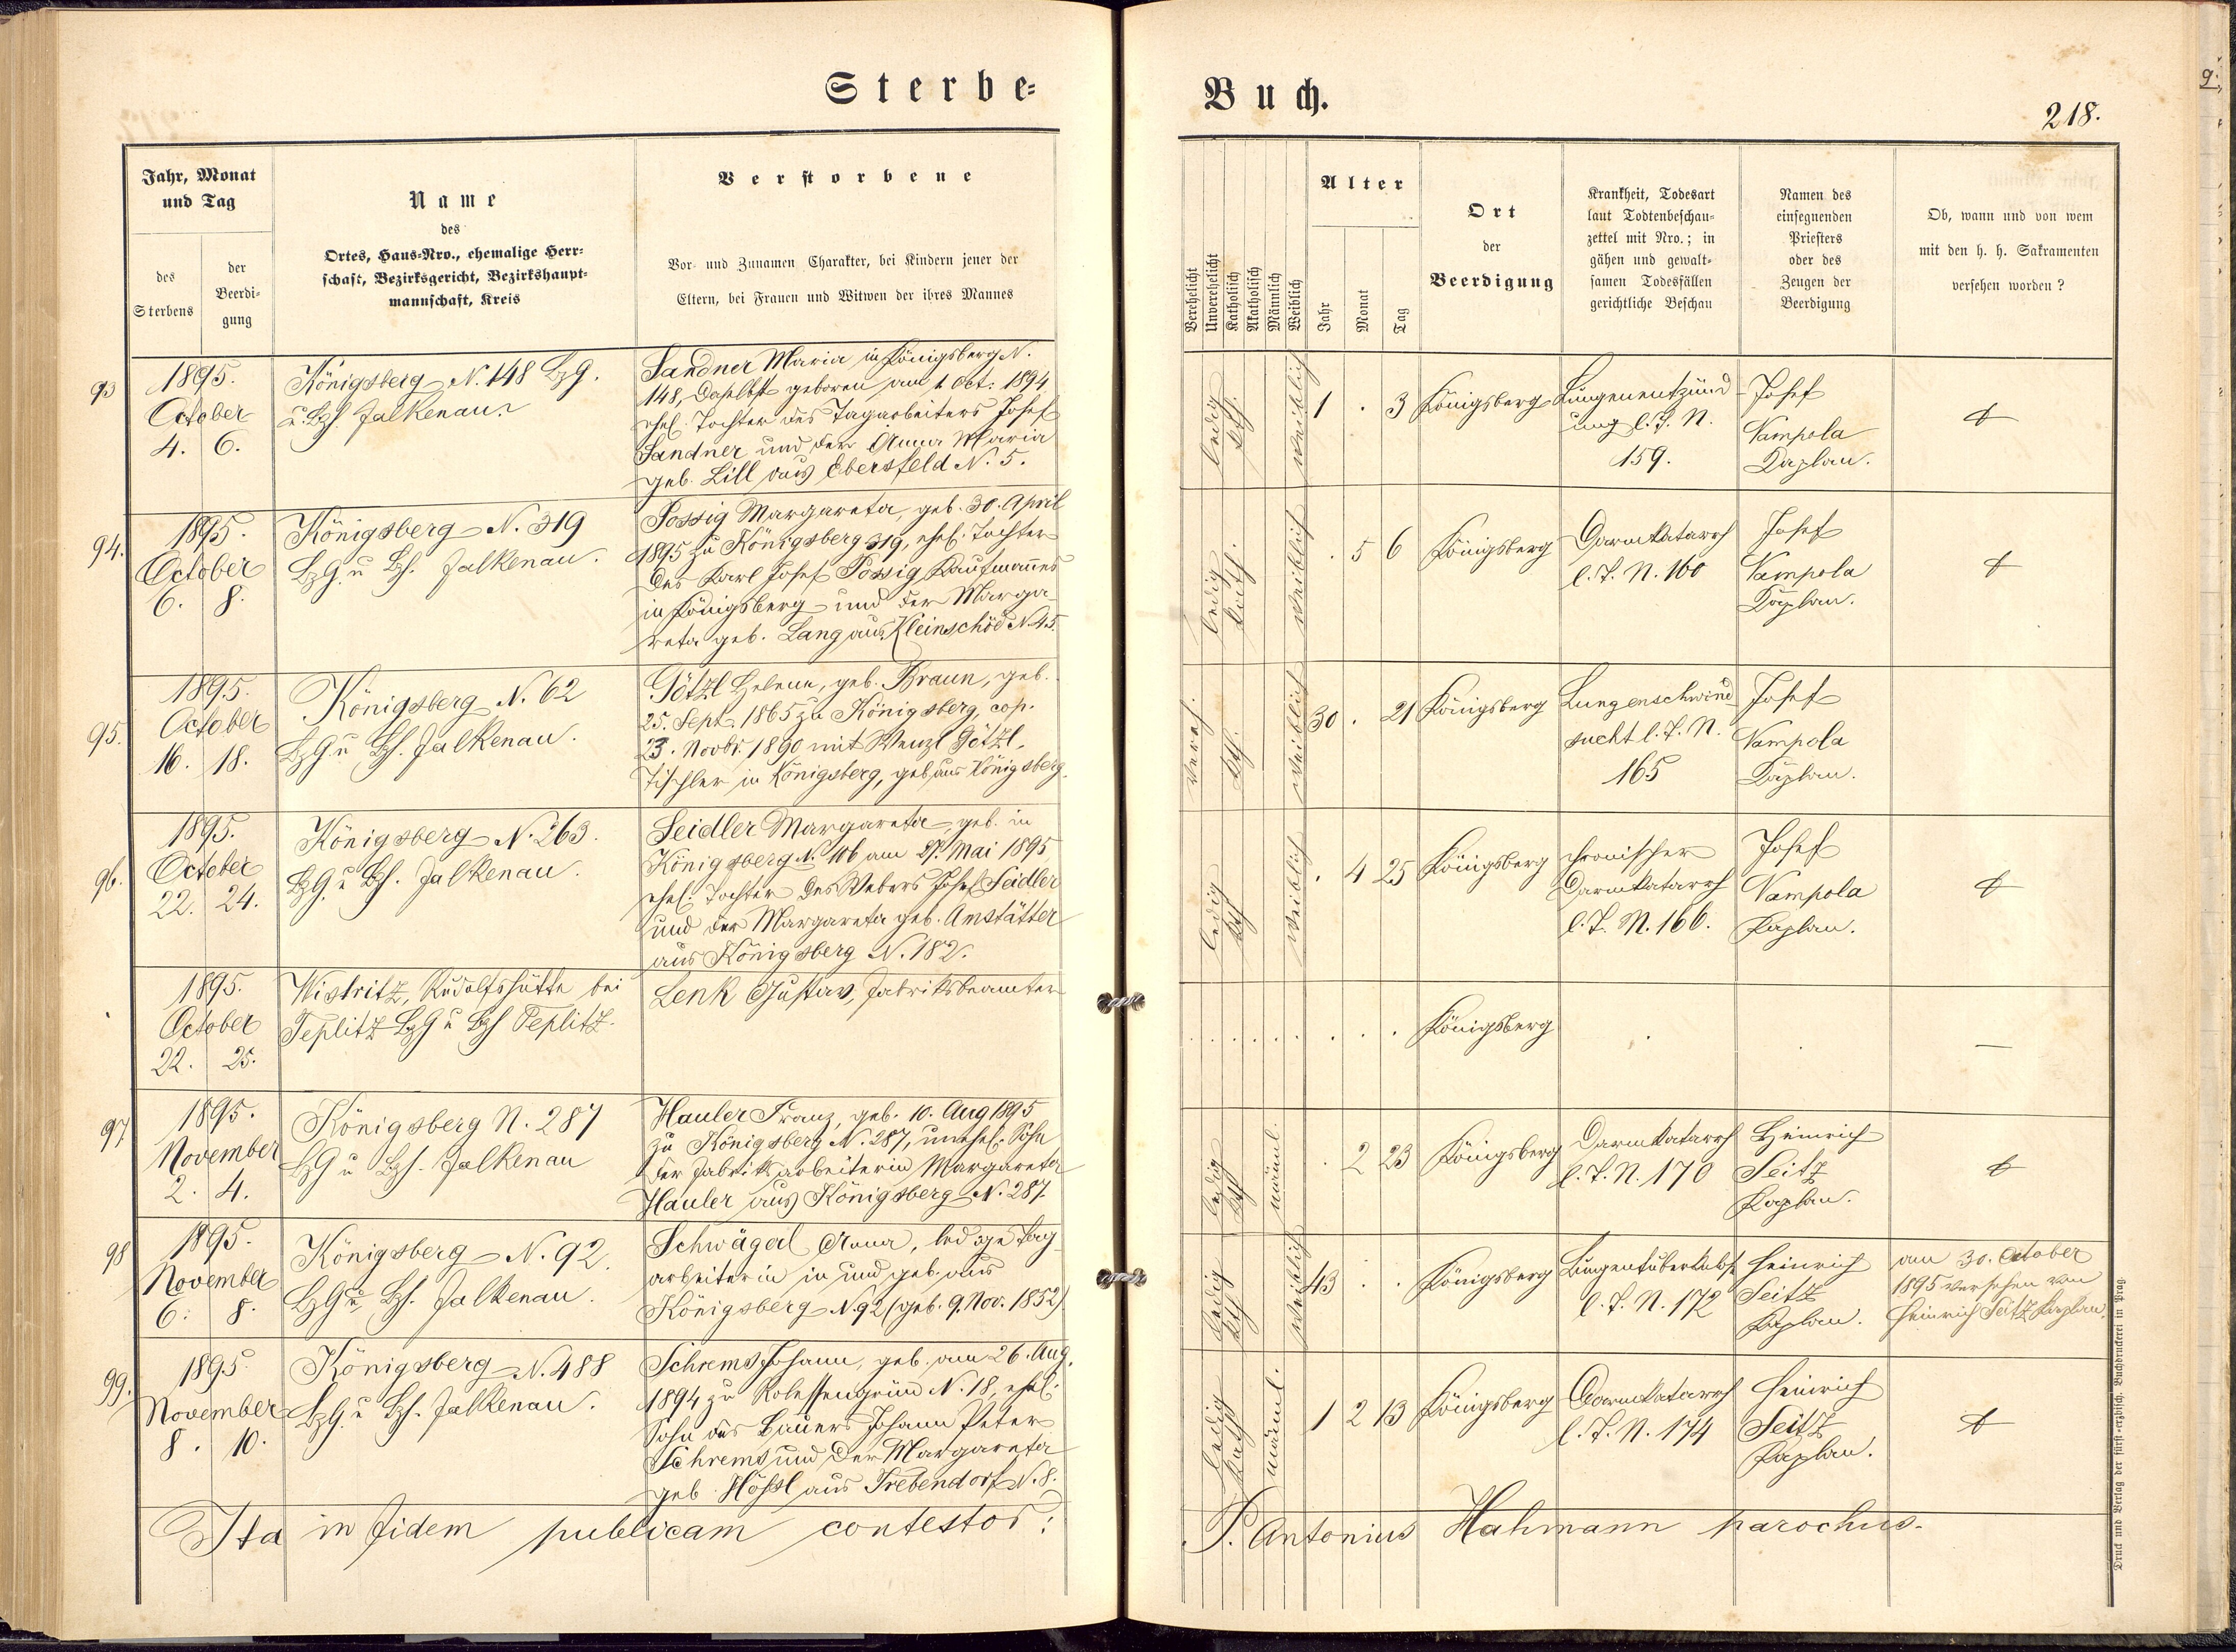 Sterbe-
Buch.
218.
9.
Jahr, Monat
und Tag
des
Sterbens
der
Beerdi-
gung
Name
des
Ortes, Haus-Nro., ehemalige Herr-
schaft, Bezirksgericht, Bezirkshaupt-
mannschaft, Kreis
Verstorbene
Vor- und Zunamen Charakter, bei Kindern jener der
Eltern, bei Frauen und Witwen der ihres Mannes
Verehelicht
Unverehelicht
Katholisch
Akatholisch
Männlich
Weiblich
Alter
Jahr
Monat
Tag
Ort
der
Beerdigung
Krankheit, Todesart
laut Todtenbeschau-
zettel mit Nro.; in
gähen und gewalt-
samen Todesfällen
gerichtliche Beschau
Namen des
einsegnenden
Priesters
oder des
Zeugen der
Beerdigung
Ob, wann und von wem
mit den h. h. Sakramenten
versehen worden?
93
1895.
October
4. 6.
Königsberg N. 148 BzG.
u. Bzh. Falkenau.
Sandner Maria in Königsberg N.
148, daselbst geboren am 1. Oct. 1894
ehel. Tochter des Tagarbeiters Josef
Sandner und der Anna Maria
geb. Lill aus Ebersfeld N. 5.
ledig
kth.
weiblich
1 . 3
Königsberg
Lungenentzünd-
ung l. T. N.
159.
Josef
Vampola
Kaplan.
94.
1895.
October
6. 8.
Königsberg N. 319
BzG. u Bzh. Falkenau.
Possig Margareta, geb. 30. April
1895 zu Königsberg 319, ehel. Tochter
des Karl Josef Possig Kaufmannes
in Königsberg und der Marga-
reta geb. Lang aus Kleinschöd N. 45.
ledig
kath.
weiblich
. 5 6
Königsberg
Darmkatarrh
l. T. N. 160
Josef
Vampola
Kaplan.
95.
1895.
October
16. 18.
Königsberg N. 62
BzG u Bzh. Falkenau.
Götzl Helena, geb. Braun, geb.
25. Sept. 1865 zu Königsberg, cop.
23. Novbr. 1890 mit Wenzl Götzl,
Tischler in Königsberg, geb. aus Königsberg.
vereh.
kth.
weiblich
30 . 21
Königsberg
Lungenschwind-
sucht l. T. N.
165
Josef
Vampola
Kaplan.
96.
1895.
October
22. 24.
Königsberg N. 263.
BzG. u Bzh. Falkenau.
Seidler Margareta, geb. in
Königsberg N. 106 am 27. Mai 1895
ehel. Tochter des Webers Josef Seidler
und der Margareta geb. Amstätter
aus Königsberg N. 182.
ledig
kth
weiblich
. 4 25
Königsberg
chronischer
Darmkatarrh
l. T. N. 166.
Josef
Vampola
Kaplan.
1895.
October
22. 25.
Wistritz, Rudolfshütte bei
Teplitz BzG u Bzh Teplitz.
Lenk Gustav, Fabriksbeamter
Königsberg
97
1895.
November
2. 4.
Königsberg N. 287
BzG u Bzh. Falkenau
Hauler Franz, geb. 10. Aug 1895
zu Königsberg N. 287, unehel. Sohn
der Fabriksarbeiterin Margareta
Hauler aus Königsberg N. 287.
ledig
kth
männl.
. 2 23
Königsberg
Darmkatarrh
l. T. N. 170
Heinrich
Seitz
Kaplan.
98
1895.
November
6. 8.
Königsberg N. 92.
BzG u Bzh. Falkenau.
Schwägerl Anna, ledige Tag-
arbeiterin in und geb. aus
Königsberg N. 92 (geb. 9. Nov. 1852)
ledig
kth
weiblich
43 . .
Königsberg
Lungentuberkulose
l. T. N. 172
Heinrich
Seitz
Kaplan.
am 30. October
1895 versehen von
Heinrich Seitz Kaplan.
99.
1895
November
8. 10.
Königsberg N. 488
BzG. u Bzh. Falkenau.
Schrems Johann, geb. am 26. Aug.
1894 zu Robessengrün N. 18, ehel.
Sohn des Bauers Johann Peter
Schrems und der Margareta
geb. Hößl aus Trebendorf N. 8.
ledig
kath
männl.
1 2 13
Königsberg
Darmkatarrh
l. T. N. 174
Heinrich
Seitz
Kaplan.
Ita in fidem publicam contestor:
P. Antonius Hahmann parochus.
Druck und Verlag der fürst-erzbisch. Buchdruckerei in Prag.